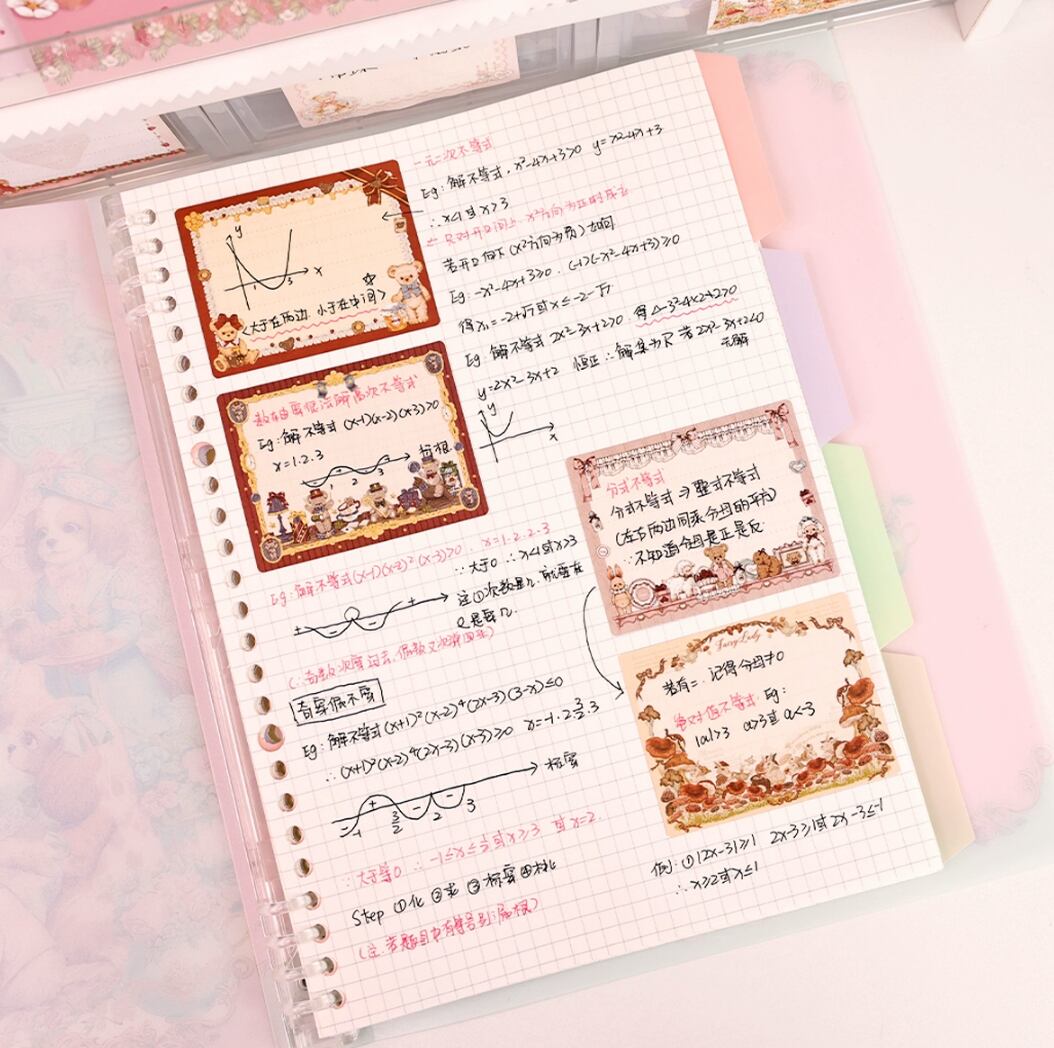 一元二次不等式
Eg: 解不等式, x²-4x+3>0 y=x²-4x+3
∴ x<1或x>3
只对开口向上, x²方向为正时成立
若开口向下(x²方向为负)
Eg: -x²-4x+3≥0. (-1)(-x²-4x+3)≥0
得x₁=-2+√7或x≤-2-√7
Eg: 解不等式2x²-3x+2>0 得△-3²-4×2×2>0
y=2x²-3x+2 恒正 ∴解集为R 若2x²-3x+2<0
无解
y
x
y
1
3
x
<大于在两边, 小于在中间>
数轴穿根法解高次不等式
Eg: 解不等式 (x-1)(x-2)(x-3)>0
x=1.2.3
- + - +
1 2 3
标根
分式不等式
分式不等式→整式不等式
(左右两边同乘分母的平方)
∵不知道分母是正是反
Eg: 解不等式(x-1)(x-2)²(x-3)>0. x=1.2.2.3
∵大于0 ∴x<1或x>3
+ - - +
注①次数是几, 就要在
若有=. 记得分母≠0
绝对值不等式 Eg:
|a|>3 a>3或a<-3
奇穿偶不穿
Eg: 解不等式(x+1)²(x-2)⁴(2x-3)(3-x)≤0
∴(x+1)²(x-2)⁴(2x-3)(x-3)≥0 x=-1.2.3/2.3
标穿
-1 3/2 2 3
∵大于等0 ∴-1≤x≤1/2或x≥3 或x=2.
Step ①化 ②求 ③标穿
例: ①|2x-3|≥1 2x-3≥1或2x-3≤-1
∴x≥2或x≤1